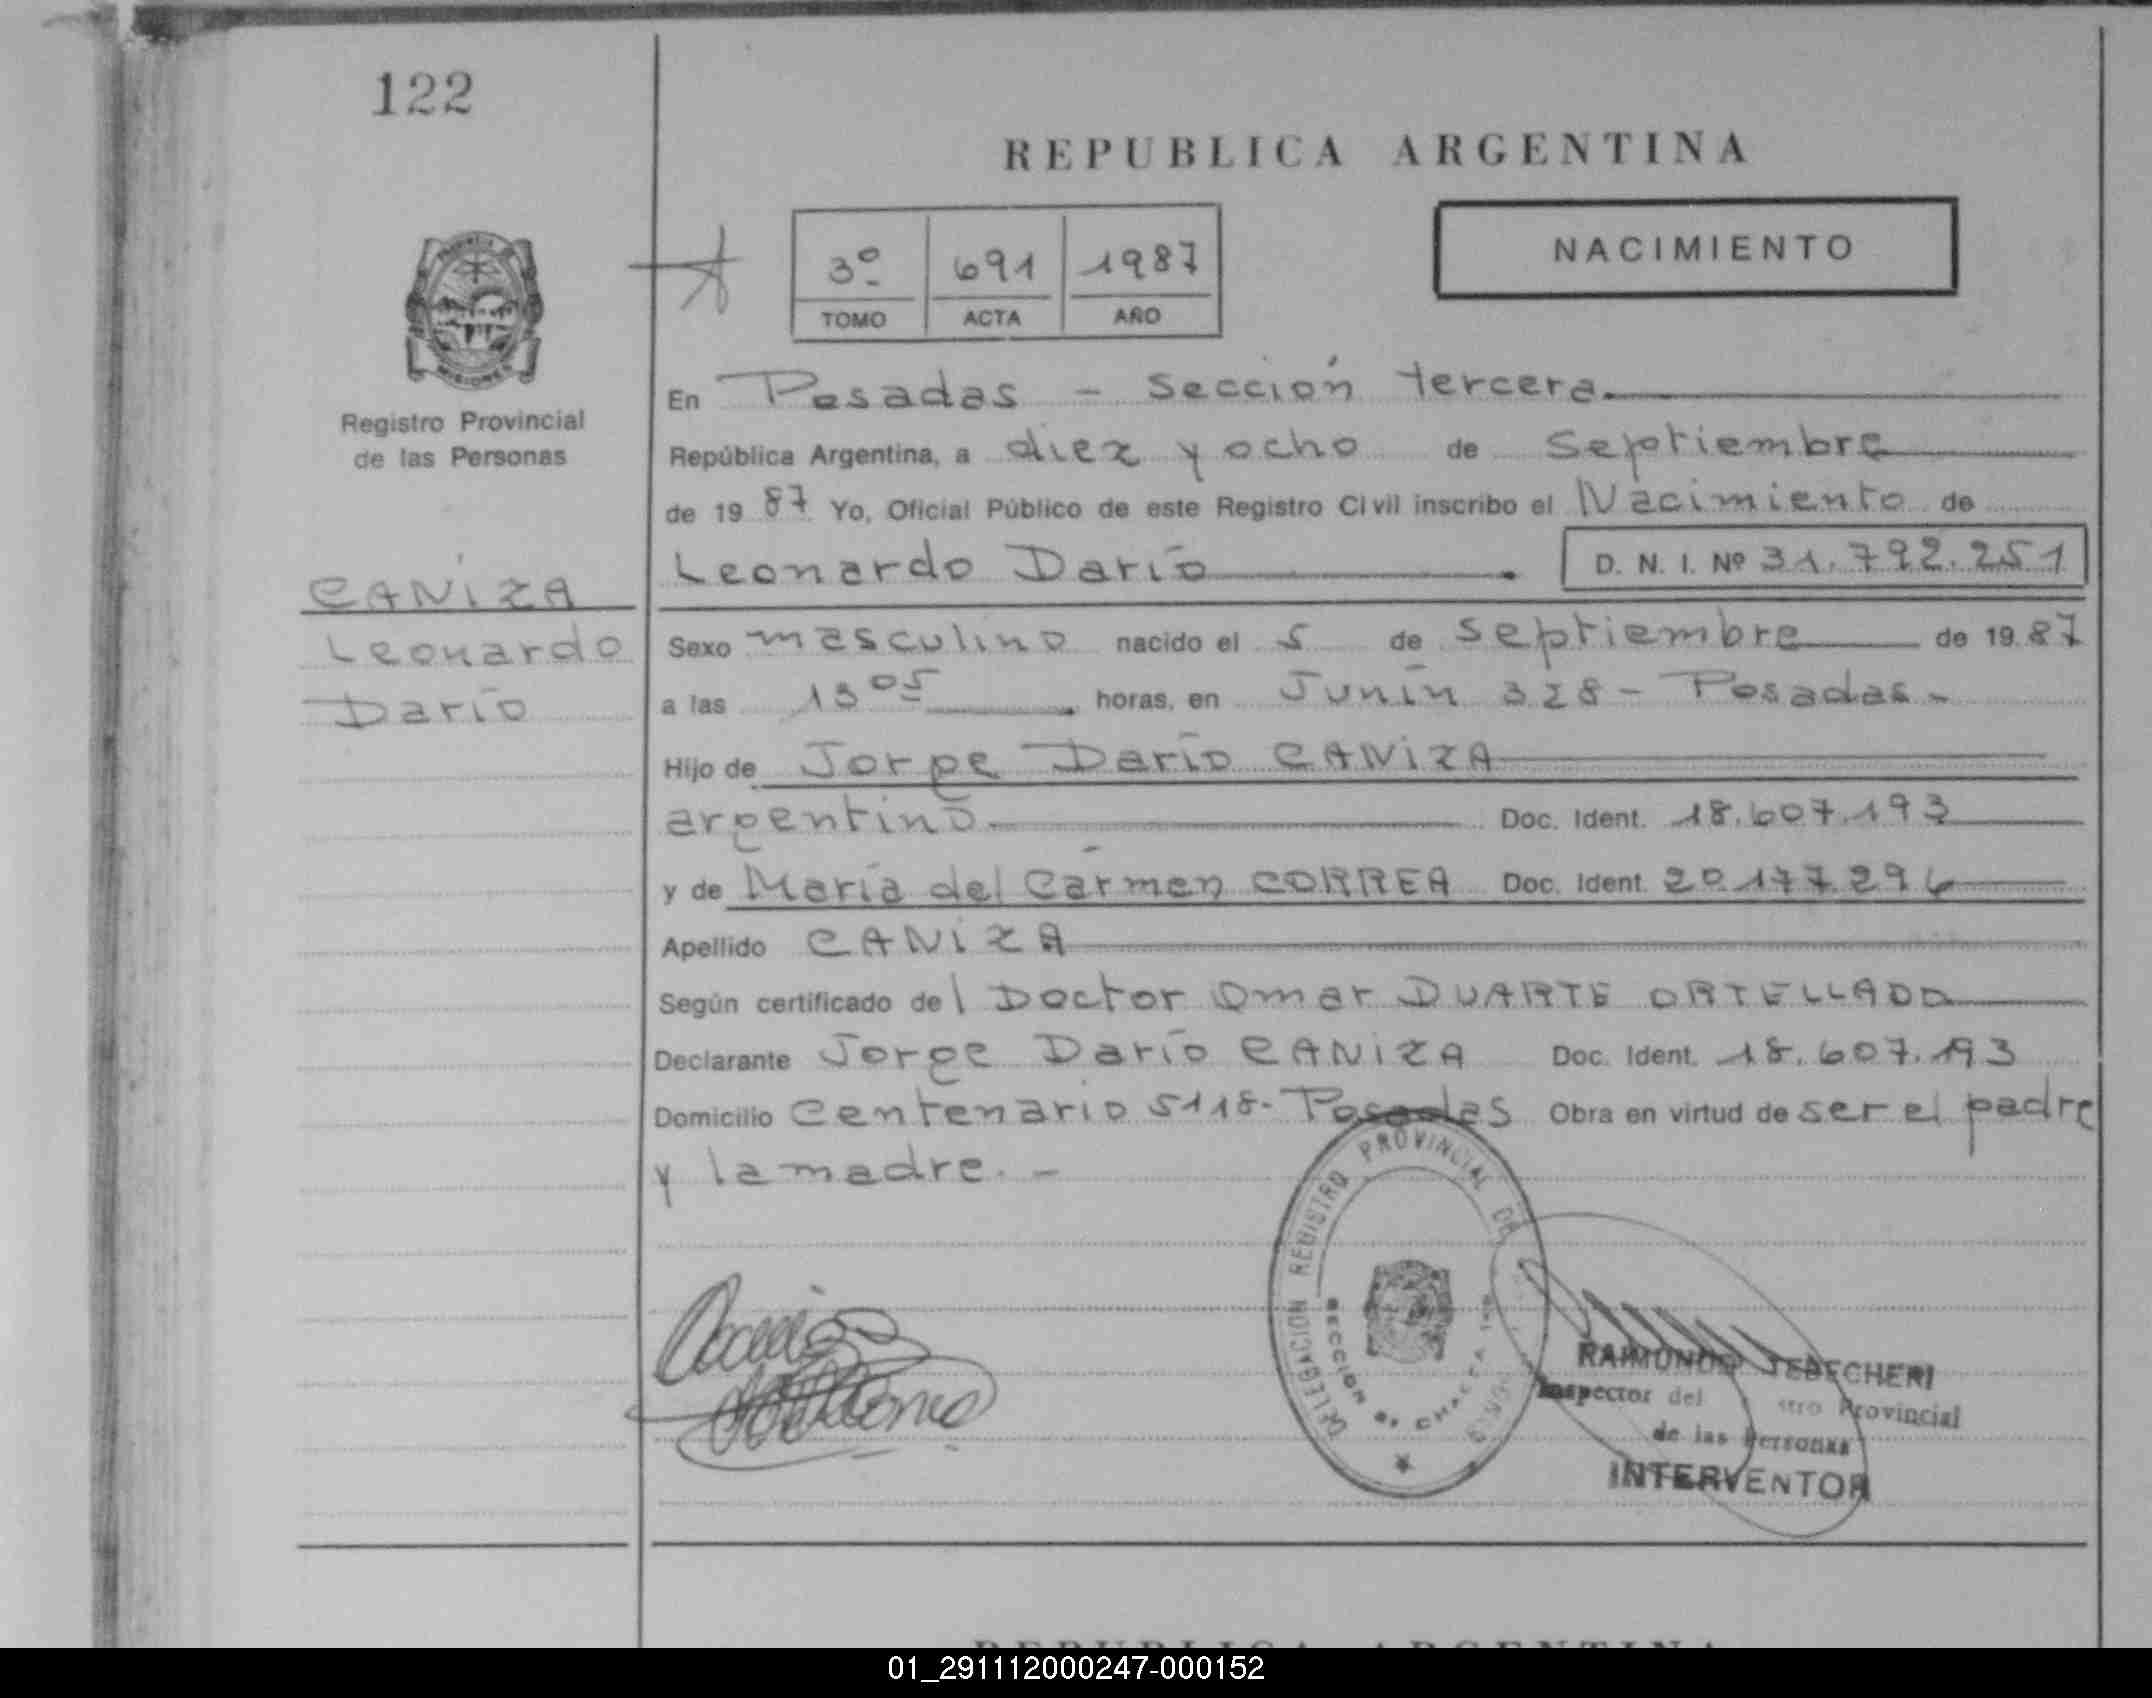 122
REPUBLICA ARGENTINA
NACIMIENTO
3º 691 1987
TOMO ACTA AÑO
MISIONES
Registro Provincial
de las Personas
CANIZA
Leonardo
Darío
En Posadas - Sección tercera.
República Argentina, a diez y ocho de Septiembre
de 19 87 Yo, Oficial Público de este Registro Civil inscribo el Nacimiento de
Leonardo Darío . D. N. I. Nº 31.792.251
Sexo masculino nacido el 5 de septiembre de 19 87
a las 13 05 . horas, en Junín 328 - Posadas -
Hijo de Jorge Darío CANIZA
argentino. Doc. Ident. 18.607.193
y de María del Cármen CORREA Doc. Ident. 20.177.296
Apellido CANIZA
Según certificado del Doctor Omar DUARTE ORTELLADO
Declarante Jorge Darío CANIZA Doc. Ident. 18.607.193
Domicilio Centenario 5118 - Posadas Obra en virtud de ser el padre
y la madre. -
DELEGACION REGISTRO PROVINCIAL DE
SECCION
RAIMUNDO
Inspector del Provincial
de las Personas
INTERVENTOR
REPUBLICA ARGENTINA
01_291112000247-000152